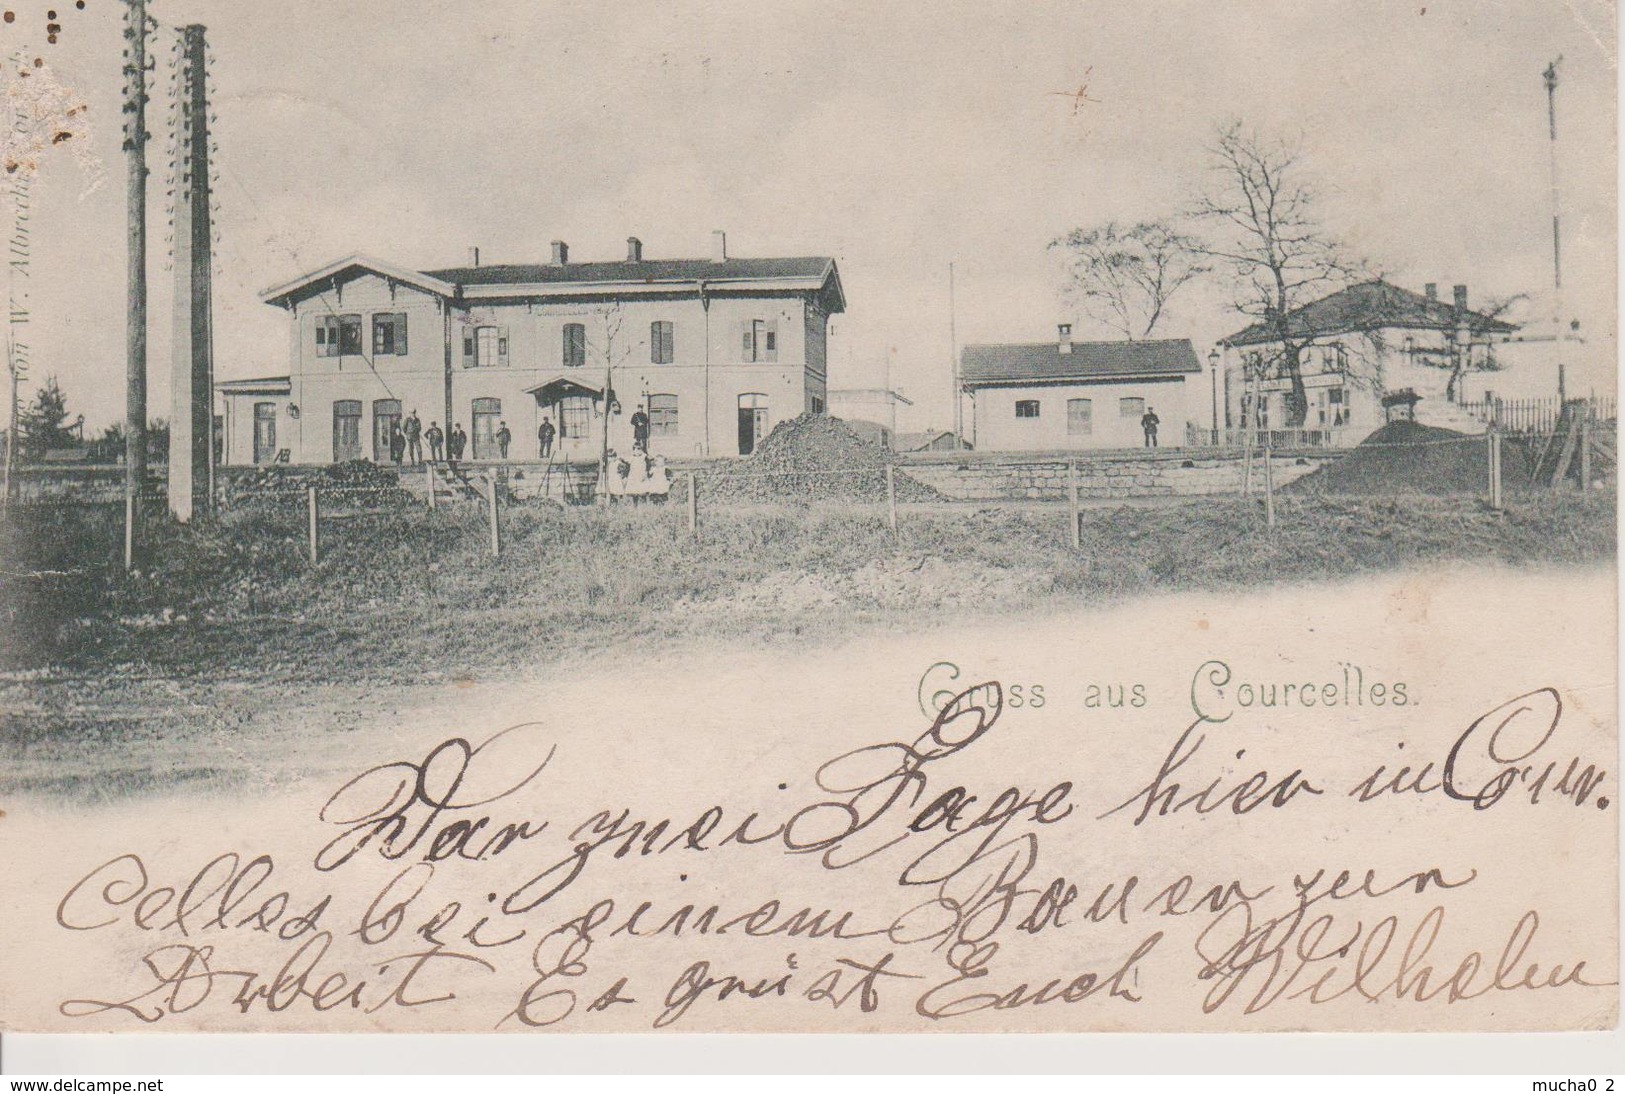 von W. Albrecht
Gruss aus Courcelles.
War zwei Tage hier in Cour.
Celles bei einem Bauer zur
Arbeit Es grüst Euch Wilhelm
www.delcampe.net
mucha0 2